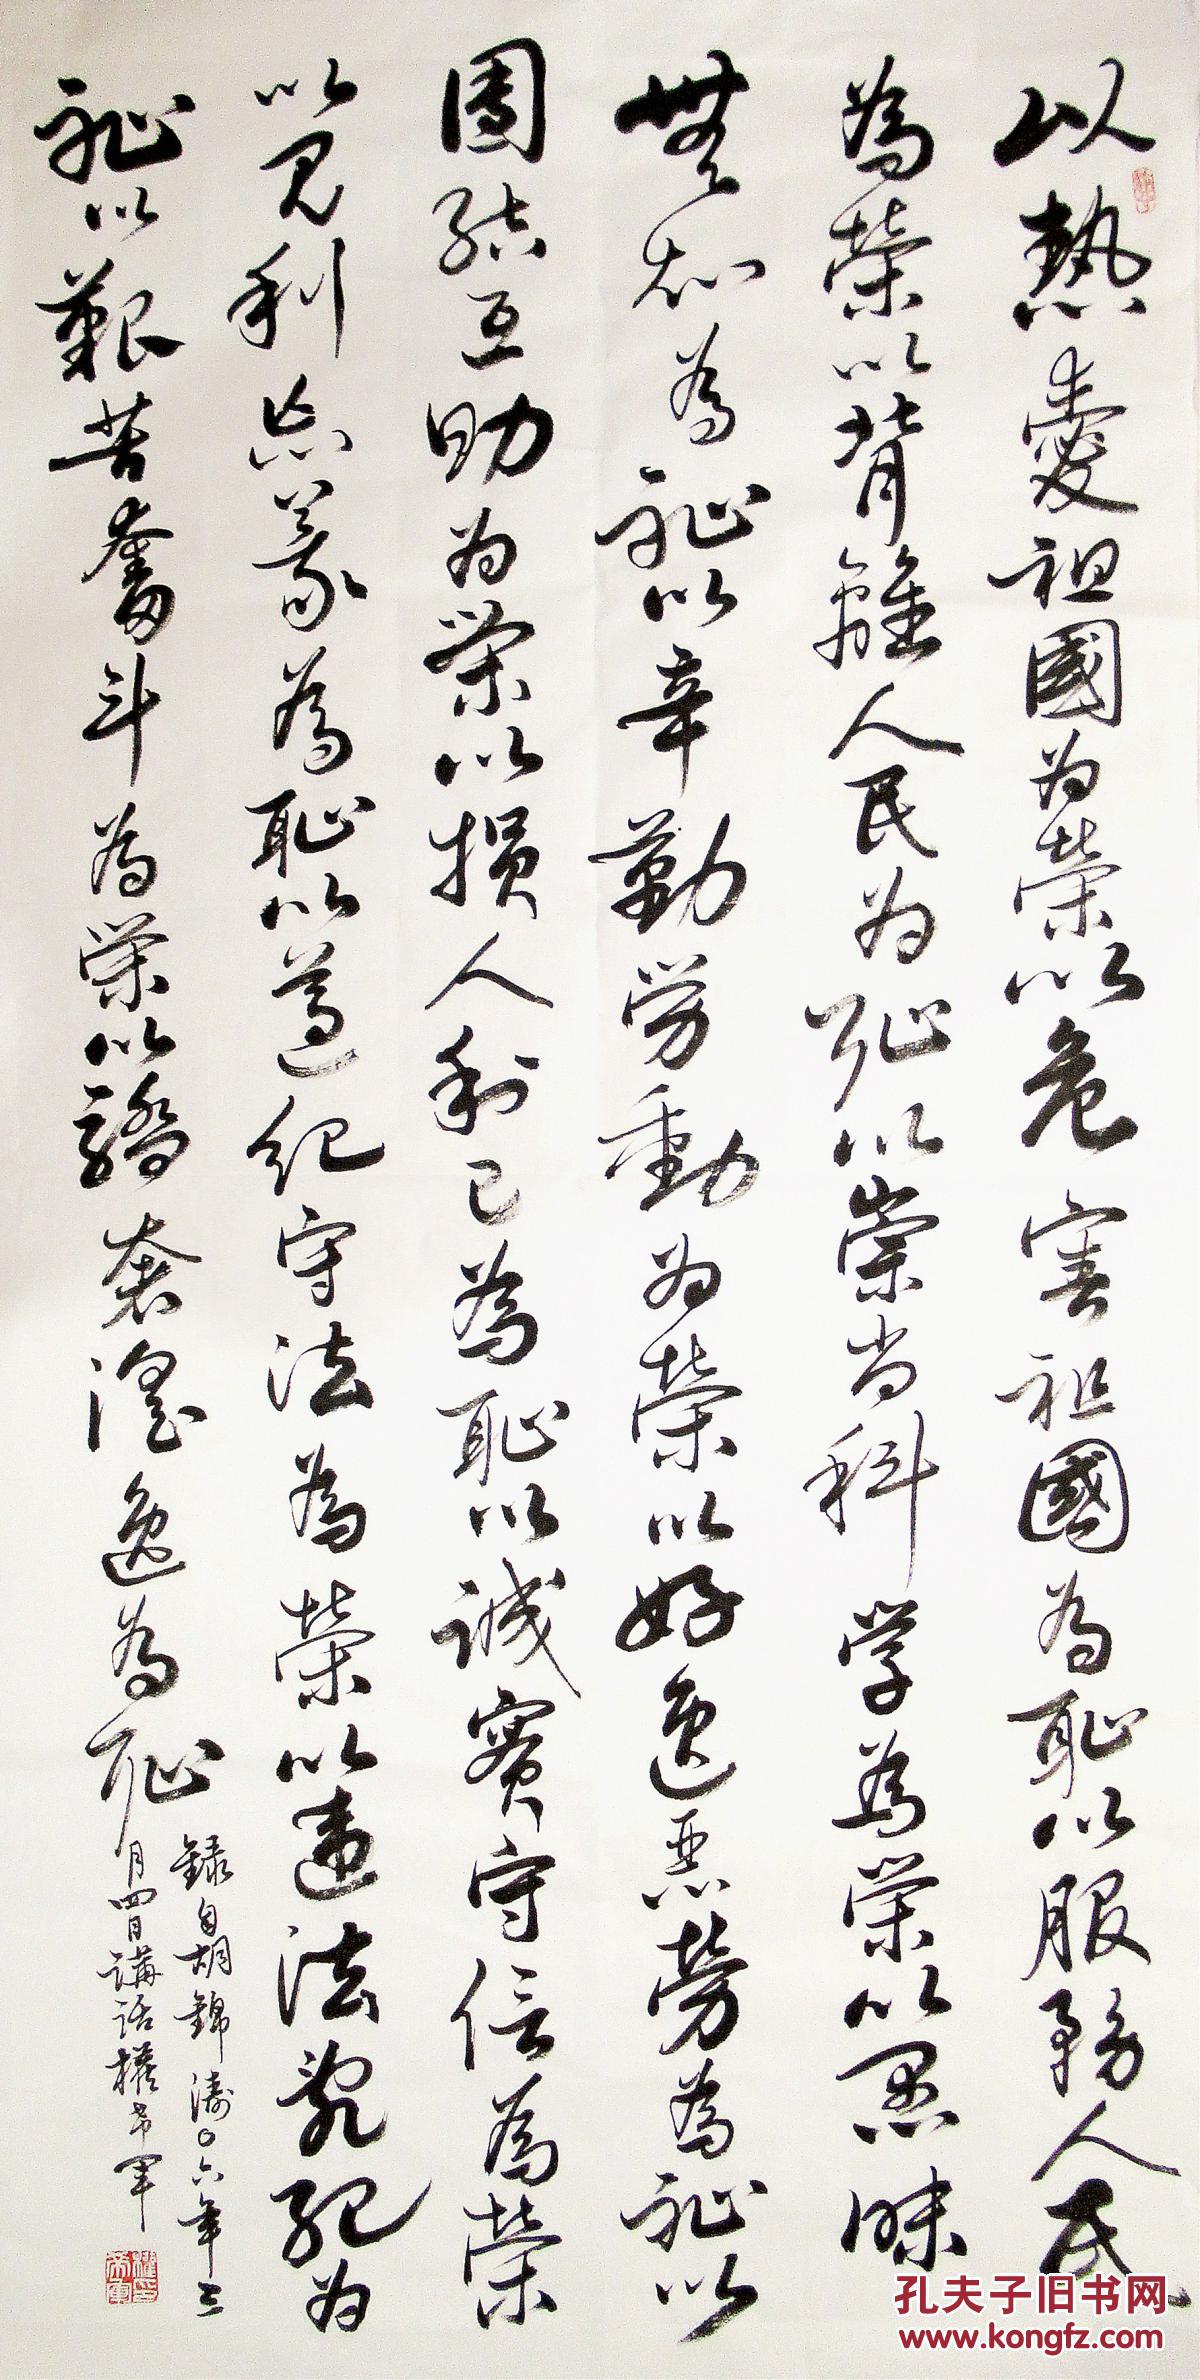 以熱愛祖國为榮以危害祖國為恥以服務人民
為榮以背離人民为恥以崇尚科学為榮以愚昧
無知為恥以辛勤勞動为榮以好逸惡勞為恥以
團結互助为榮以損人利己為恥以誠實守信為榮
以見利忘義為恥以遵紀守法為榮以違法亂紀为
恥以艱苦奮斗為榮以驕奢淫逸為恥
錄自胡錦濤〇六年三
月四日講話權希軍
權希軍印
孔夫子旧书网
www.kongfz.com